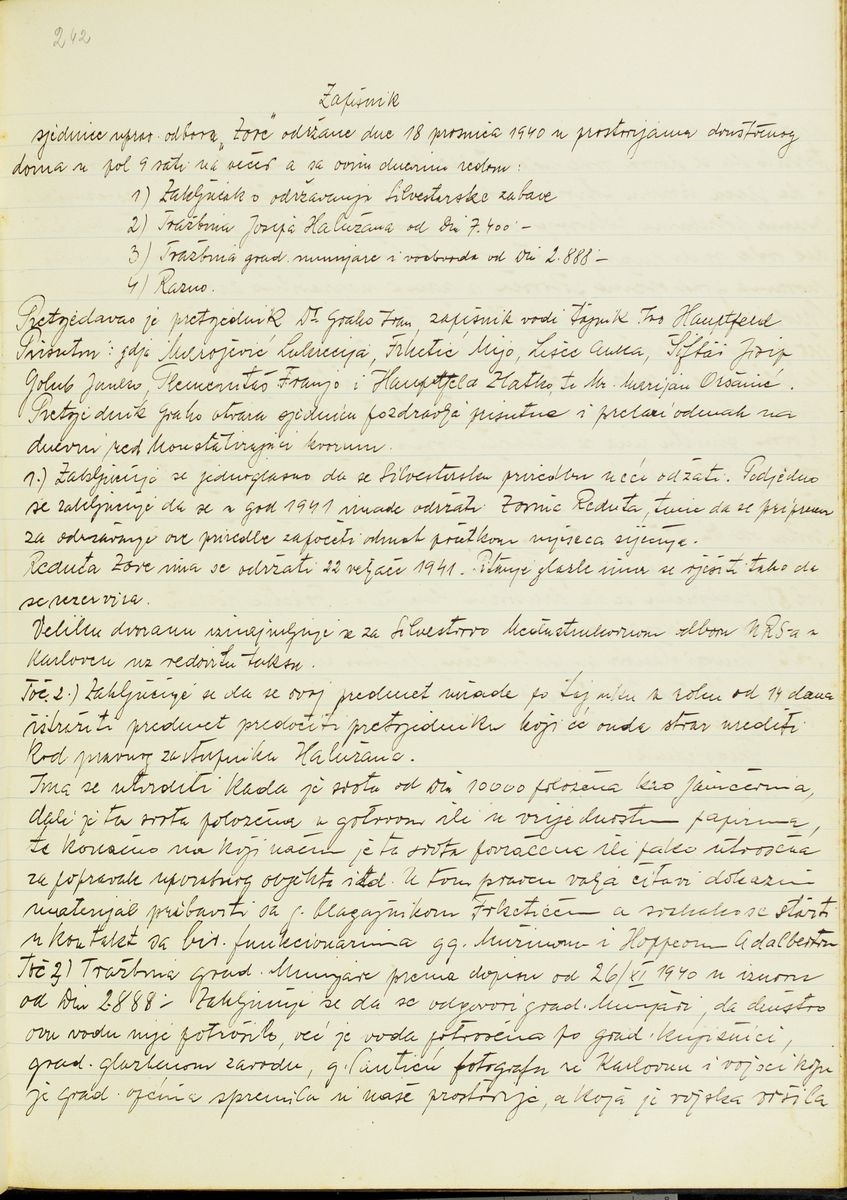 242
Zapisnik
sjednice uprav. odbora "Zore" održane dne 18 prosinca 1940 u prostorijama društvenog
doma u pol 9 sati na večer a sa ovim dnevnim redom:
1) Zaključak o održavanju Silvesterske zabave
2) Tražbina Josipa Halužana od Din 7.400.-
3) Tražbina grad. munjare i vodovoda od Din 2.888.-
4) Razno.
Pretsjedavao je pretsjednik Dr. Grako Ivan, zapisnik vodi tajnik Ivo Hauptfeld
Prisutni: gdja Lukrecija, Frketić Mijo, Lisac Anka, Šiftar Josip
Golub Janko, Plemenitaš Franjo i Hauptfeld Zlatko, te Mr. Marijan Oršanić.
Pretsjednik Grako otvara sjednicu pozdravlja prisutne i prelazi odmah na
dnevni red konstatirajući kvorum.
1.) Zaključuje se jednoglasno da se Silvestersku priredbu neće održati. Podjedno
se zaključuje da se u god 1941 imade održati Zorina Reduta, time da se pripreme
za održavanje ove priredbe započeti odmah početkom mjeseca siječnja.
Reduta Zore ima se održati 22 veljače 1941. Pitanje glazbe ima se riješiti tako da
se rezervira.
Veliku dvoranu iznajmljuje se za Silvestrovo odboru URSa u
Karlovcu uz redovitu taksu.
Toč. 2.) Zaključuje se da se ovaj predmet imade po tajniku u roku od 14 dana
istražiti predmet predočiti pretsjedniku koji će onda stvar urediti
kod pravnog zastupnika Halužana.
Ima se utvrditi kada je svota od Din 10000 položena kao jamčevina,
dali je ta svota položena u gotovom ili u vrijednosnim papirima,
te konačno na koji način je ta svota povraćena ili pako utrošena
za popravak uporabnog objekta itd. U tom pravcu valja čitavi dokazni
materijal pribaviti sa g. blagajnikom Frketićem a svakako se stupiti
u kontakt sa biv. funkcionarima gg. Mužinom i Hoppeom Adalbertom
Toč 3) Tražbina grad. Munjare prema dopisu od 26/XI 1940 u iznosu
od Din 2888.- Zaključuje se da se odgovori grad. Munjari, da društvo
ovu vodu nije potrošilo, već je voda potrošena po grad. knjižnici,
grad. glazbenom zavodu, g. fotografu u Karlovcu i vojsci koju
je grad. općina spremila u naše prostorije, a koja je vojska vršila